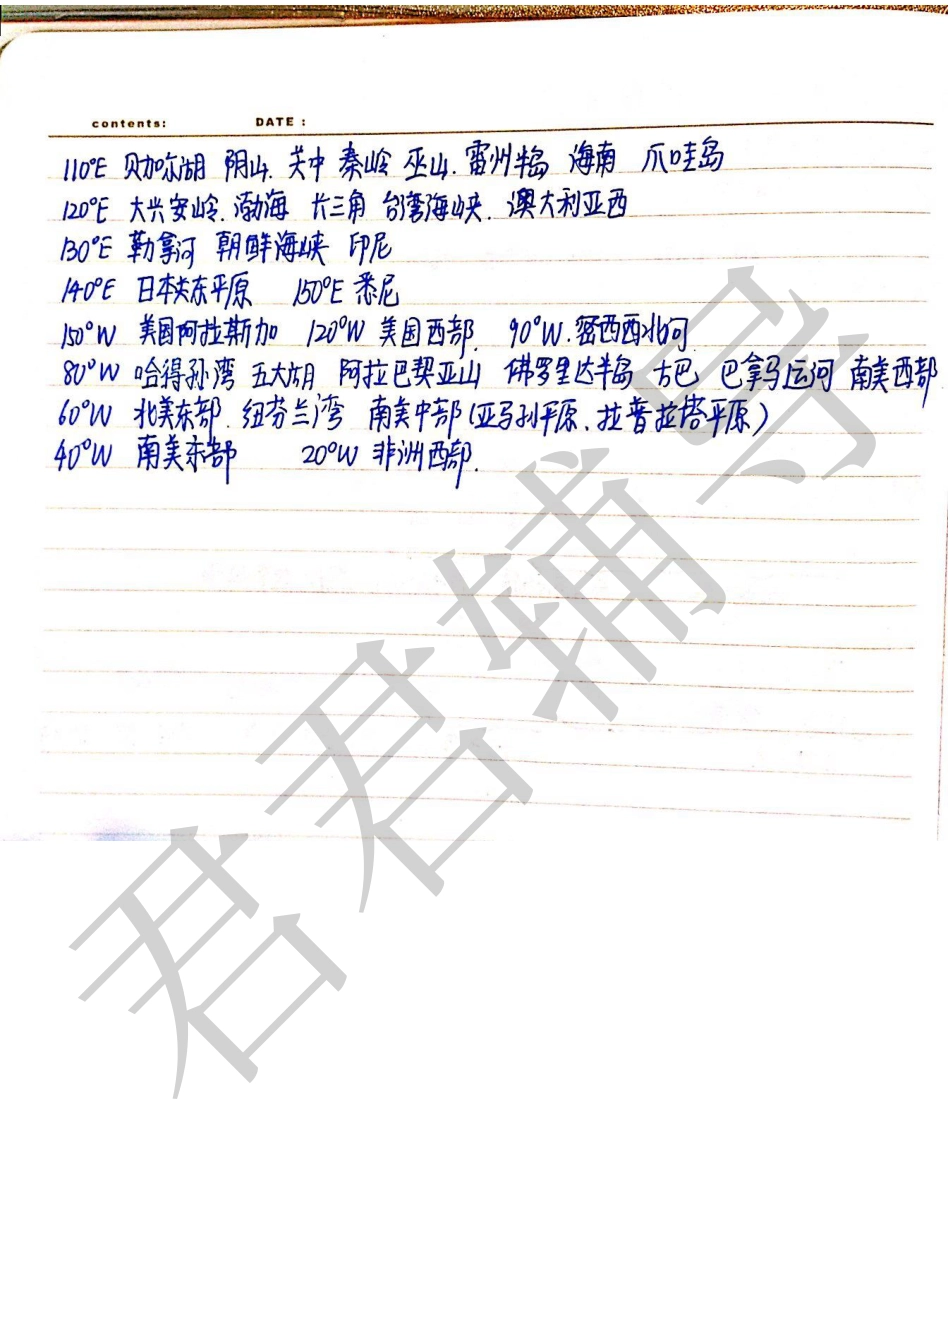 contents: DATE:
110°E 贝加尔湖 阴山. 关中 秦岭 巫山. 雷州半岛 海南 爪哇岛
120°E 大兴安岭. 渤海 长三角 台湾海峡. 澳大利亚西
130°E 勒拿河 朝鲜海峡 印尼
140°E 日本关东平原 150°E 悉尼
150°W 美国阿拉斯加 120°W 美国西部. 90°W. 密西西北河
80°W 哈得孙湾 五大湖 阿拉巴契亚山 佛罗里达半岛 古巴 巴拿马运河 南美西部
60°W 北美东部. 纽芬兰湾 南美中部(亚马孙平原、拉普拉塔平原)
40°W 南美东部 20°W 非洲西部.
君君辅导